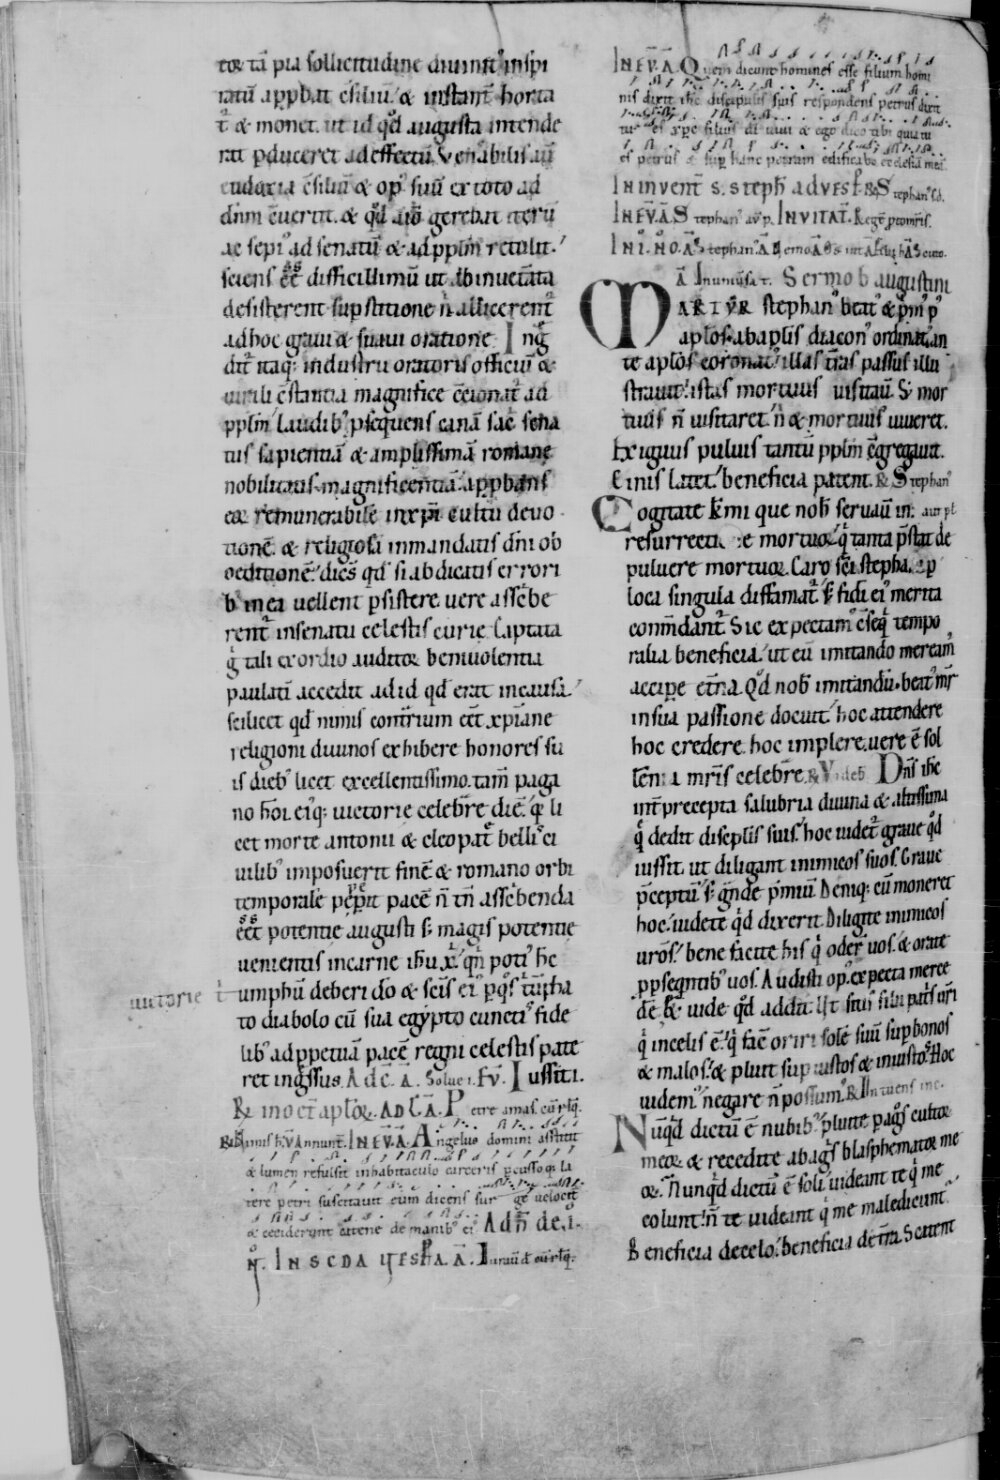 tor tā pia sollicitudine divinit᷒ inspi
ratū appbat ꝯsiliū / & instant̄ horta
t̄ & monet. ut id qd̄ augusta intende
rat pduceret ad effectū. Venabilis aū
eudoxia ꝯsiliū & op᷒ suū ex toto ad
dn̄m ꝯvertit. & qd̄ gerebat iterū
ac sepi᷒ ad senatū & ad pplm̄ retulit.
sciens eē difficillimū ut ab inveterata
desisterent supstitione n̄ allicerent̄
ad hoc gravi & suavi oratione. Ing̃
dit̄ itaq; industrii oratoris officiū &
virili ꝯstantia magnifice ꝯcionat̄ ad
pplm̄ / Laudib᷒ psequens canā sac̄ sena
tus sapientiā & amplissimā romane
nobilitatis magnificentiā. appbans
eor̄ remunerabilē in xp̄i cultū devo
tionē. & religiosā in mandatis dn̄i ob
oeditionē. dicēs qd̄ si abdicatis errori
b᷒ in ea vellent psistere. vere asc̄be
rent̄ in senatu celestis curie. Captata
g̊ tali exordio auditor̄ benivolentia
paulatī accedit ad id qd̄ erat in causa.
scilicet qd̄ nimis cont̄rium eēt xp̄iane
religioni divinos exhibere honores su
is dieb᷒ licet excellentissimo. tam̄ paga
no hōi. ei᷒q; victorie celebr̄e diē. q̄ li
cet morte antonii & cleopat̄ bellis ci
vilib᷒ imposuerit finē & romano orbi
temporalē pepit pacē n̄ tn̄ asc̄benda
eēt potentie augusti s; magis potentie
venientis in carne ih̄u x̄. q̄n poti᷒ hc̄
victorie t
umphū deberi dō & sc̄is ei᷒ p q᷒s t̄ūpha
to diabolo cū sua egypto cuncti᷒ fide
lib᷒ ad ppetuā pacē regni celestis pate
ret ing̃ssus. Ad c̄. A. Solve i. Ev̄. Iussit i.
& in oct̄ aplor̄. Ad C̄. A. Petre amas. cū rlq̄.
In Ev̄. A. Angelus domini astitit
& lumen refulsit in habitaculo carceris pcussoq; la
tere petri suscitavit eum dicens surge velocit̄
& ceciderunt catene de manib᷒ ei᷒
In scda
In Ev̄. A. Quem dicunt homines esse filium homi
nis dixit ih̄c discipulis suis respondens petrus dixit
tu es xp̄e filius dī vivi & ego dico tibi quia tu
es petrus & sup hanc petram edificabo ecclesiā meā
In invent̄ s. steph̄ ad vesp̄. R Stephan᷒
In Ev̄. A. Stephan᷒ Invitat̄. Regē ptomr̄is.
In I. No. A. Stephan᷒
Sermo b augustini
Martyr stephan᷒ beat᷒ & p̄m᷒ p᷒
aplos. ab aplis diacon᷒ ordinat᷒ an
te aplos coronat᷒. illas t̄ras passus illu
stravit. istas mortuus visitavit. Si mor
tuus n̄ visitaret. n̄ & mortuus viveret.
Exiguus pulvis tantū pplm̄ ꝯgregavit.
Cinis latet / beneficia patent. R Stephan᷒
Cogitate k̄mi que nob᷒ servavit in
resurrectione mortuor̄. q̇ tanta p̄stat de
pulvere mortuor̄. Caro sc̄i stephani p
loca singula diffamat̄ s; fidei ei᷒ merita
com̄dant̄. Sic expectam᷒ ꝯseq̄ tempo
ralia beneficia / ut eū imitando meream̄
accipe et̄na. Qd̄ nob᷒ imitandū beat᷒ mr̄
in sua passione docuit / hoc attendere
hoc credere. hoc implere. vere ē sol
lenia mr̄is celebr̄e. R Videb. Dn̄s ih̄c
int̄ precepta salubria divina & altissima
q̄ dedit disciplis suis. hoc videt̄ grave qd̄
iussit. ut diligant inimicos suos. Grave
p̄ceptū / s; g̃nde p̄miū. Deniq; cū moneret
hoc / videte qd̄ dixerit. Diligite inimicos
vr̄os. bene facite his q̇ oder̄ vos. & orate
p pseqntib᷒ vos. Audisti op᷒. expecta merce
dē. & vide qd̄ addit. Ut sitis filii pat̄s vr̄i
q̇ in celis ē. q̇ facit oriri solē suū sup bonos
& malos. & pluit sup iustos & iniustos. Hoc
videm᷒. negare n̄ possum᷒. R Intuens inc.
Nūqd̄ dictū ē nubib᷒. pluite p agos cultor̄
meor̄ & recedite ab agris blasphemator̄ me
or̄. Nūqd̄ dictū ē soli / videant te q̇ me
colunt / n̄ te videant q̇ me maledicunt
Beneficia de celo / beneficia de t̄ra. Scatent